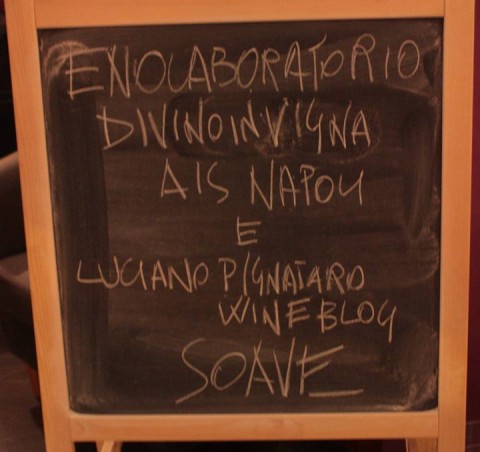 ENOLABORATORIO
DIVINOINVIGNA
AIS NAPOLI
E
LUCIANO PIGNATARO
WINEBLOG
SOAVE